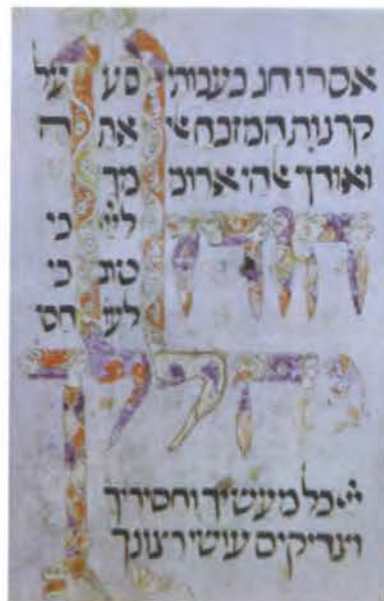 אסרו חג בעבותי על
קרנות המזבח אלי אתה
ואודך אלהי ארוממך
הודו ליי כי
טוב כי
לע חס
יהללוך
יי כל מעשיך וחסידיך
וצדיקים עושי רצונך